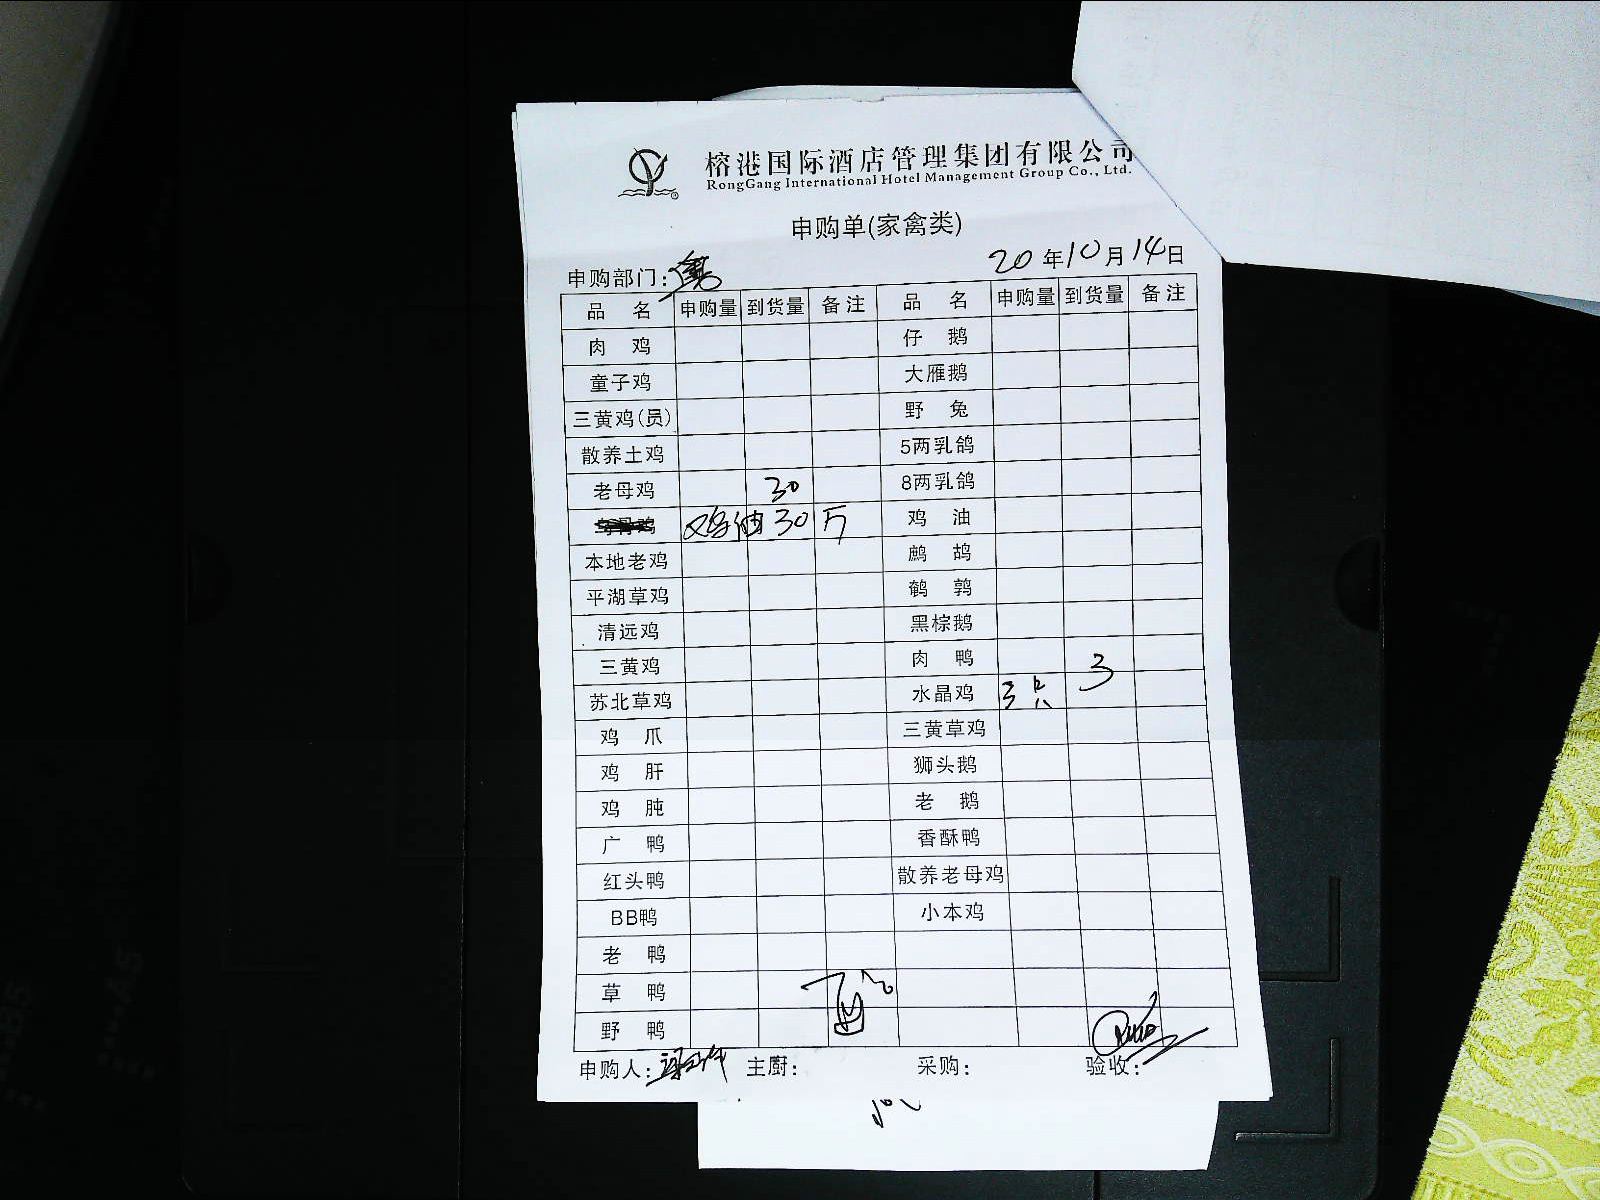 榕港国际酒店管理集团有限公司
RongGang International Hotel Management Group Co., Ltd.
申购单(家禽类)
20年10月14日
申购部门:
品 名 申购量 到货量 备注 品 名 申购量 到货量 备注
肉 鸡 仔 鹅
童子鸡 大雁鹅
三黄鸡(员) 野 兔
散养土鸡 5两乳鸽
老母鸡 30 8两乳鸽
鸡油30斤 鸡 油
本地老鸡 鹧 鸪
平湖草鸡 鹌 鹑
清远鸡 黑棕鹅
三黄鸡 肉 鸭
苏北草鸡 水晶鸡 3只 3
鸡 爪 三黄草鸡
鸡 肝 狮头鹅
鸡 肫 老 鹅
广 鸭 香酥鸭
红头鸭 散养老母鸡
BB鸭 小本鸡
老 鸭
草 鸭
野 鸭
申购人: 主厨: 采购: 验收: